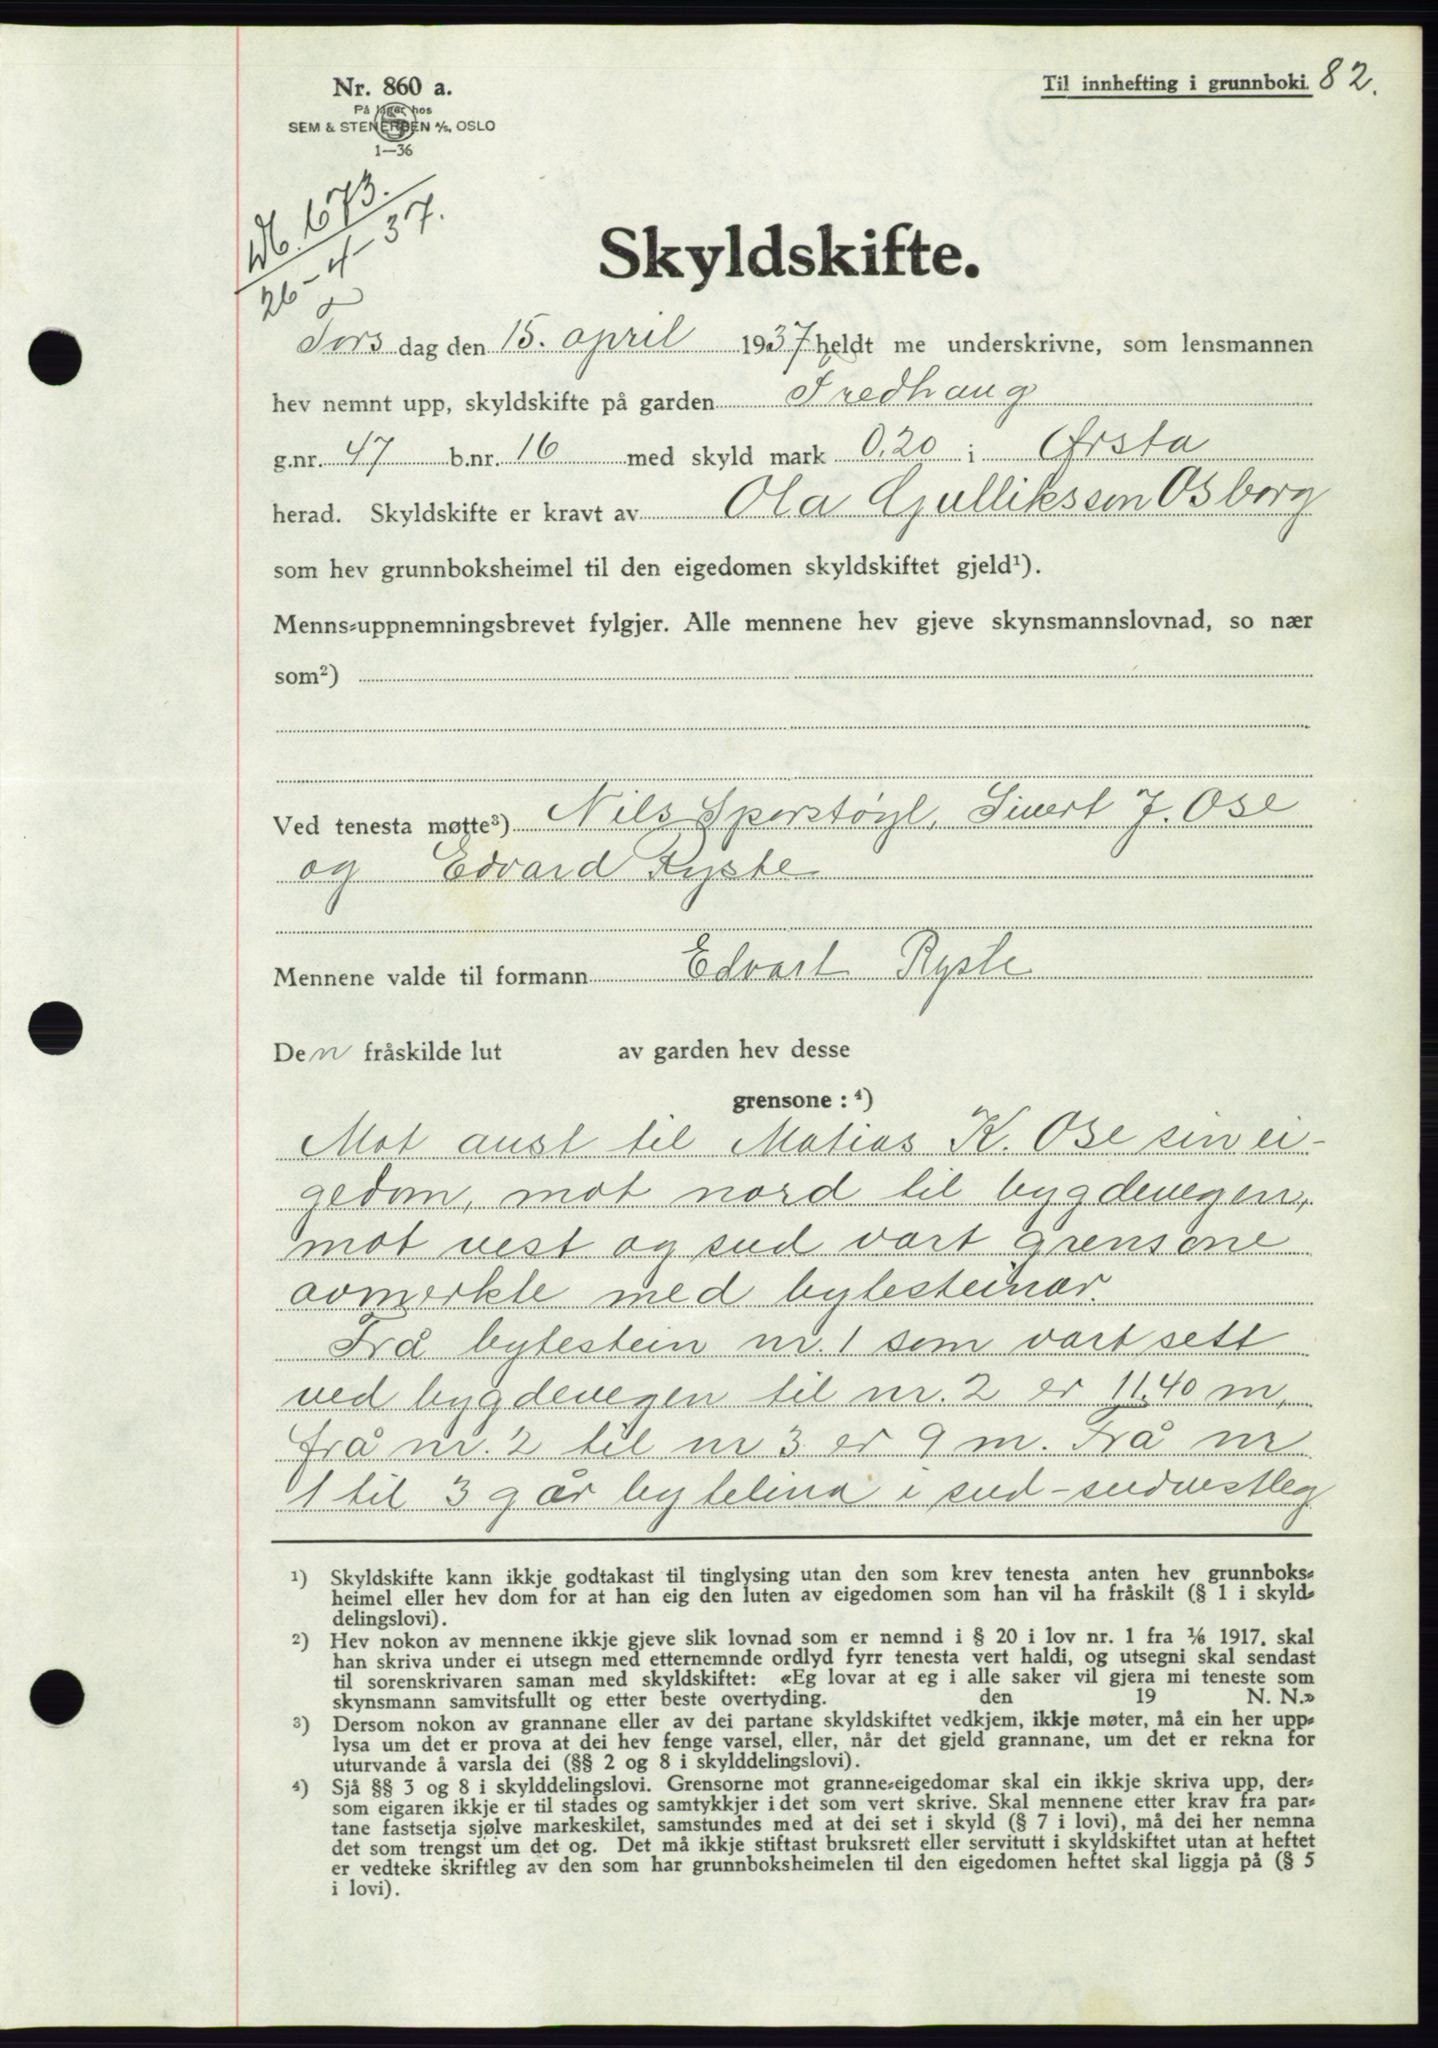 Nr. 860 a.
På lager hos
SEM & STENERSEN A/S, OSLO
1—36
Til innhefting i grunnboki 82.
Db. 673.
26-4-37.
Skyldskifte.
Tors dag den 15. april 1937 heldt me underskrivne, som lensmannen
hev nemnt upp, skyldskifte på garden Fredhaug
g.nr. 47 b.nr. 16 med skyld mark 0,20 i Ørsta
herad. Skyldskifte er kravt av Ola Gulliksson Osborg
som hev grunnboksheimel til den eigedomen skyldskiftet gjeld¹).
Menns-uppnemningsbrevet fylgjer. Alle mennene hev gjeve skynsmannslovnad, so nær
som²)
Ved tenesta møtte³) Nils Sporstøyl, Sivert J. Ose
og Edvard Ryste
Mennene valde til formann Edvart Ryste
Den fråskilde lut av garden hev desse
grensone : ⁴)
Mot aust til Matias K. Ose sin ei-
gedom, mot nord til bygdevegen,
mot vest og sud vart grensone
avmerkte med bytesteinar.
Frå bytestein nr. 1 som vart sett
ved bygdevegen til nr. 2 er 11,40 m,
frå nr. 2 til nr 3 er 9 m. Frå nr
1 til 3 går bytelina i sud-sudvestleg
¹) Skyldskifte kann ikkje godtakast til tinglysing utan den som krev tenesta anten hev grunnboks-
heimel eller hev dom for at han eig den luten av eigedomen som han vil ha fråskilt (§ 1 i skyld-
delingslovi).
²) Hev nokon av mennene ikkje gjeve slik lovnad som er nemnd i § 20 i lov nr. 1 fra 1/6 1917, skal
han skriva under ei utsegn med etternemnde ordlyd fyrr tenesta vert haldi, og utsegni skal sendast
til sorenskrivaren saman med skyldskiftet: «Eg lovar at eg i alle saker vil gjera mi teneste som
skynsmann samvitsfullt og etter beste overtyding. den 19 N. N.»
³) Dersom nokon av grannane eller av dei partane skyldskiftet vedkjem, ikkje møter, må ein her upp-
lysa um det er prova at dei hev fenge varsel, eller, når det gjeld grannane, um det er rekna for
uturvande å varsla dei (§§ 2 og 8 i skylddelingslovi).
⁴) Sjå §§ 3 og 8 i skylddelingslovi. Grensorne mot granne-eigedomar skal ein ikkje skriva upp, der-
som eigaren ikkje er til stades og samtykkjer i det som vert skrive. Skal mennene etter krav fra par-
tane fastsetja sjølve markeskilet, samstundes med at dei set i skyld (§ 7 i lovi), må dei her nemna
det som trengst um det og. Det må ikkje stiftast bruksrett eller servitutt i skyldskiftet utan at heftet
er vedteke skriftleg av den som har grunnboksheimelen til den eigedomen heftet skal liggja på (§ 5
i lovi).